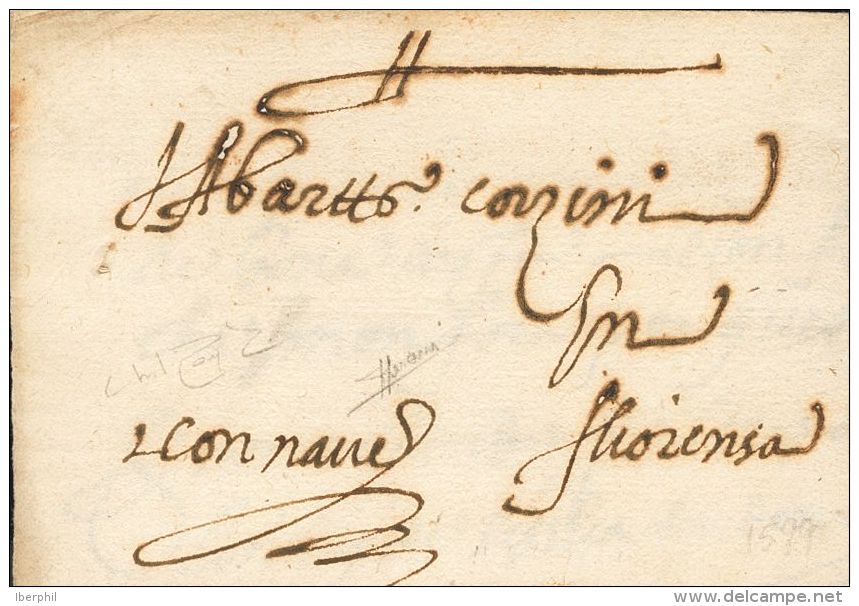 Abartts. corzini
En
fliorensa
con naue
1577
Iberphil
www.delcampe.net